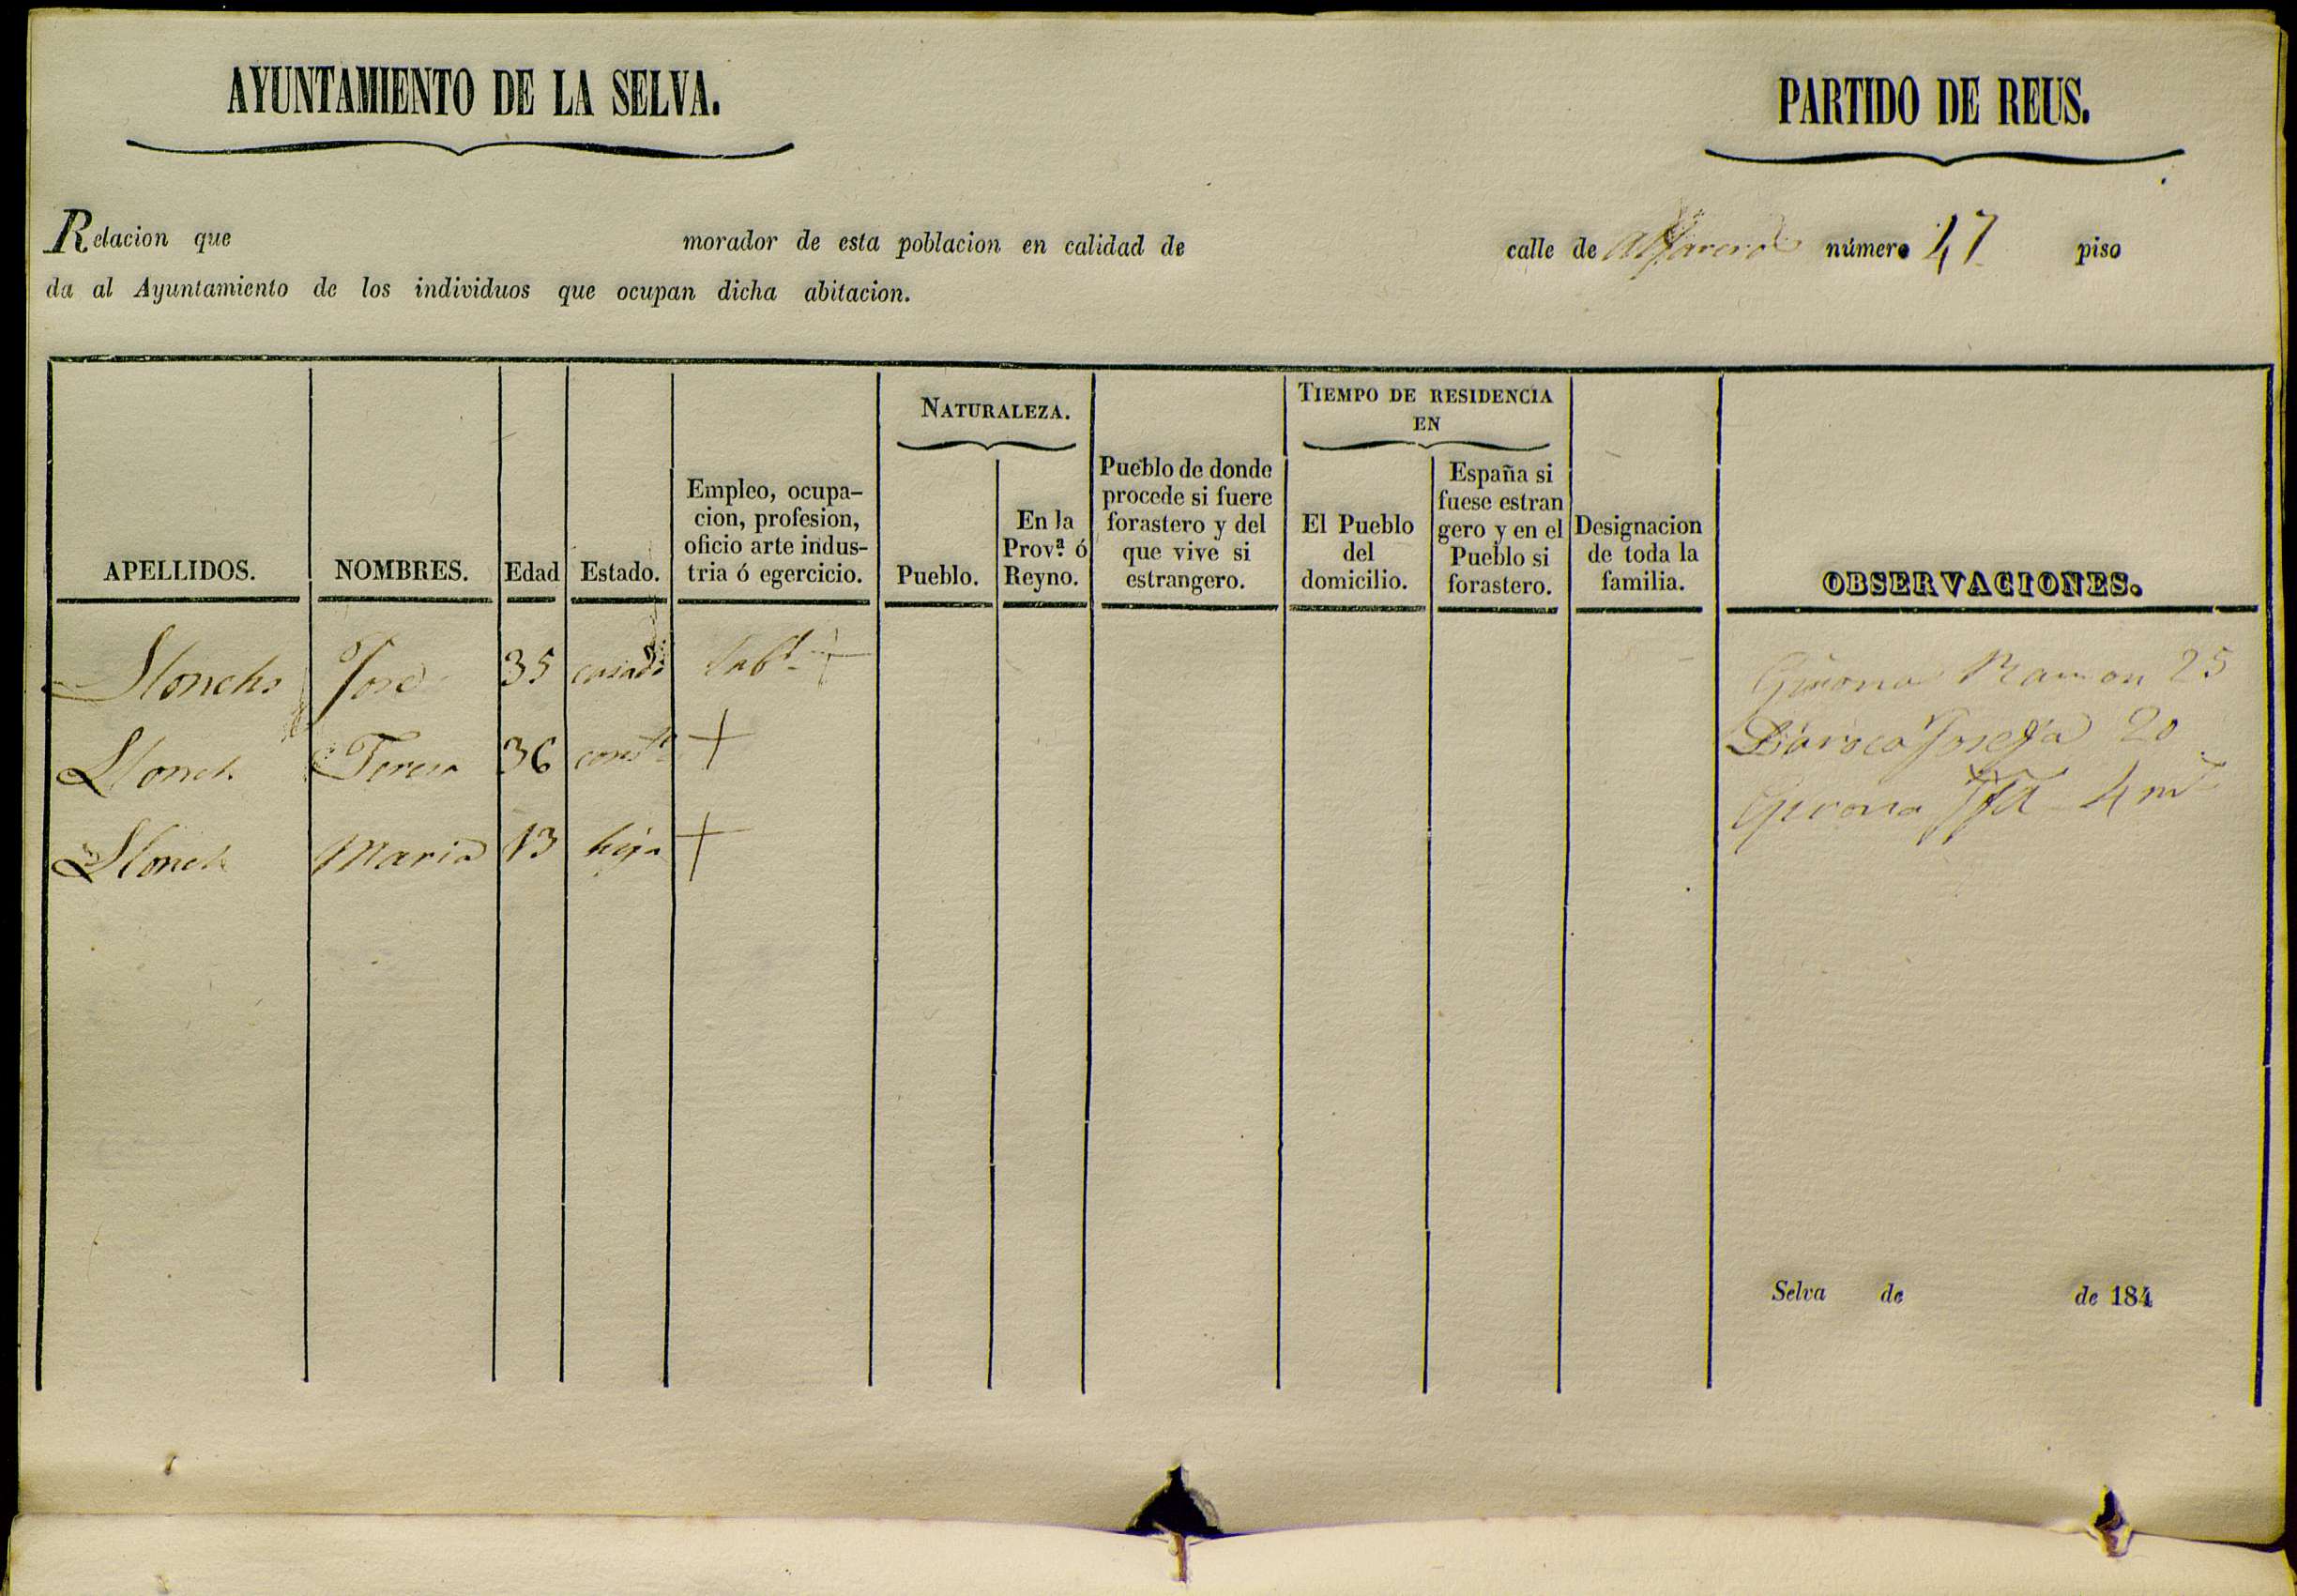 AYUNTAMIENTO DE LA SELVA.
PARTIDO DE REUS.
Relacion que morador de esta poblacion en calidad de calle de Alfareros número 47 piso
da al Ayuntamiento de los individuos que ocupan dicha abitacion.
APELLIDOS.
NOMBRES.
Edad
Estado.
Empleo, ocupa-
cion, profesion,
oficio arte indus-
tria ó egercicio.
NATURALEZA.
Pueblo.
En la
Prov.ª ó
Reyno.
Pueblo de donde
procede si fuere
forastero y del
que vive si
estrangero.
TIEMPO DE RESIDENCIA
EN
El Pueblo
del
domicilio.
España si
fuese estran
gero y en el
Pueblo si
forastero.
Designacion
de toda la
familia.
OBSERVACIONES.
Llonch José 35 casado Lab.r +
Llonch Teresa 36 +
Llonch Maria 13 hija +
Girona Ramon 25
Josefa 20
Girona 4 m.s
Selva de de 184